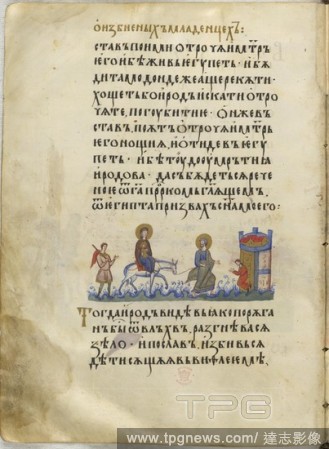 ѡ избиеныхъ младенцехъ:
ставъ поими отроуѧ и м҃трь
его и бѣжи въ егѵпетъ · и бѫ
ди тамо дондеже
хощетъ бо иродъ искати отро
ѧте, погоубити е · онже въ
ставъ, поѧтъ отроуѧ и м҃трь
его нощиѧ, и отиде въ егѵ
петъ · и бѣ тоу до оумрътиа
иродова · да събѫдетсѧ рече
ное ѿ г҃а пр҃ркомь г҃лѧщемъ,
ѿ егѵпта призвахъ с҃на моего:
Тогда иродъ видѣвъ ꙗко порѫга
нъ бы ѿ влъхвъ, разгнѣвасѧ
ѕѣло · и пославъ, изби вьсѧ
дѣти сѫщѧѧ въ виѳлеемѣ,
TPG
www.tpgnews.com/圖像 / 達志影像